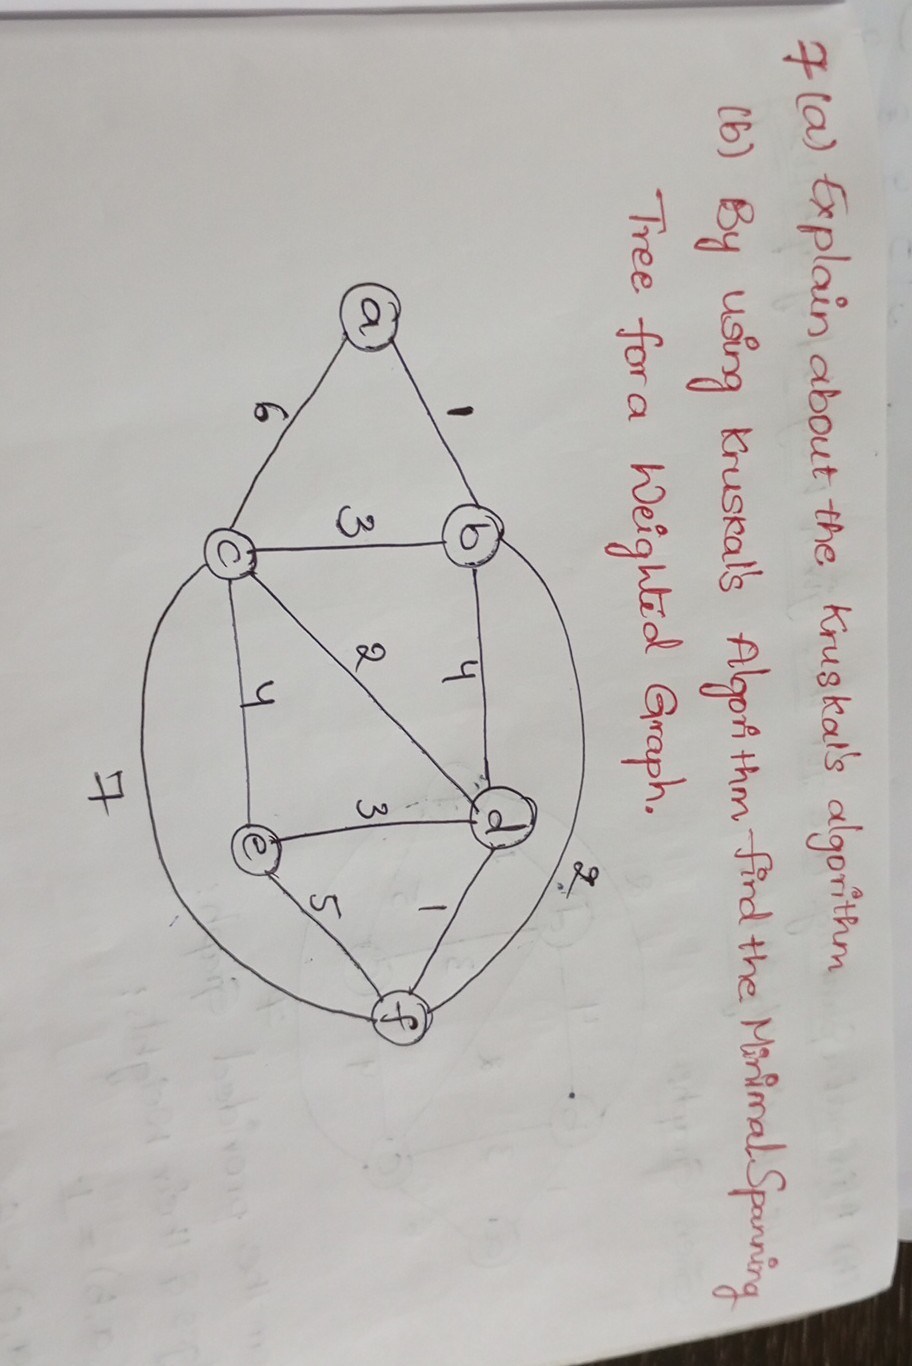 7(a) Explain about the Kruskal's algorithm
(b) By using Kruskal's Algorithm find the Minimal Spanning
Tree for a Weighted Graph.
2
a 1 b 4 d 1 f
6 3 2 3 5
c 4 e
7